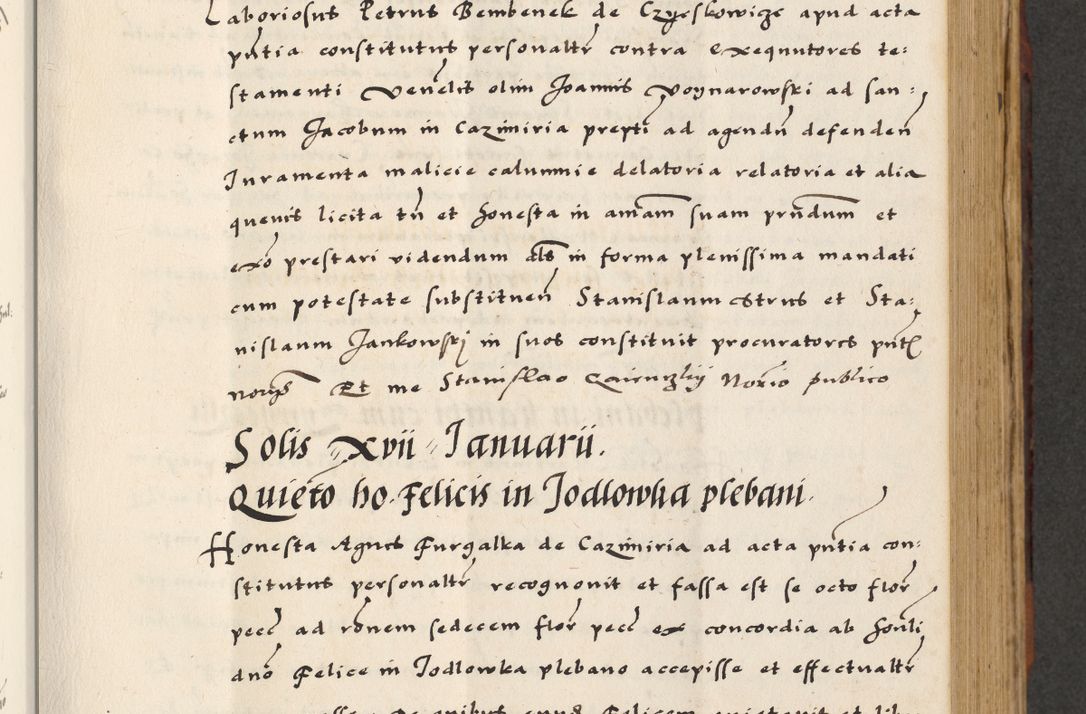 Laboriosus Petrus Bembenek de Czyeskowicze apud acta
pñtia constitutus personaltr contra exequutores te:
stamenti Venelis olim Joannis Voynarowski ad san:
ctum Jacobum in Cazimiria prepti ad agendñ defendeñ
Juramenta malicie calumnie delatoria relatoria et alia
quevis licita tñ et honesta in amam suam prñdum et
exo prestari videndum als in forma plenissima mandati
cum potestate substitueñ Stanislaum et Sta:
nislaum Jankowsky in suos constituit procuratores pnt
Et me Stanislao Norio publico
Solis xvii Januarii.
Quieto ho. Felicis in Jodlowka plebani.
Honesta Agnes Furgalka de Cazimiria ad acta pñtia con:
stitutus personaltr recognovit et fassa est se octo flor
pecc ad rõnem sedecem flor pecc ex concordia ab honli
dno Felice in Jodlowka plebano accepisse et effectualtr